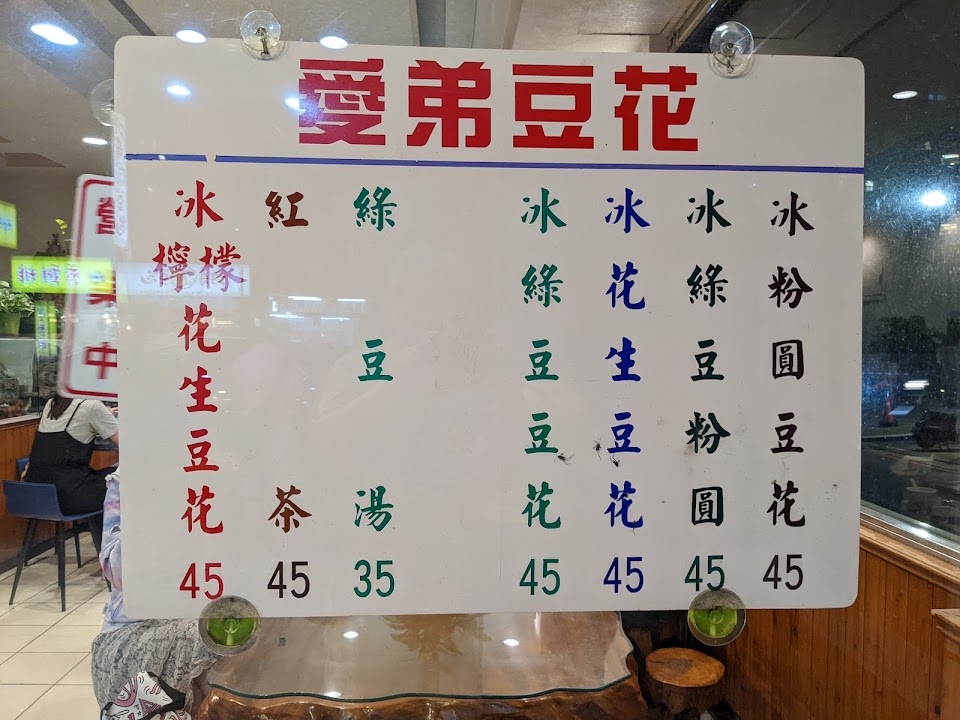 愛弟豆花
冰粉圓豆花 45
冰綠豆粉圓 45
冰花生豆花 45
冰綠豆豆花 45
綠豆湯 35
紅茶 45
冰檸檬花生豆花 45
營業中